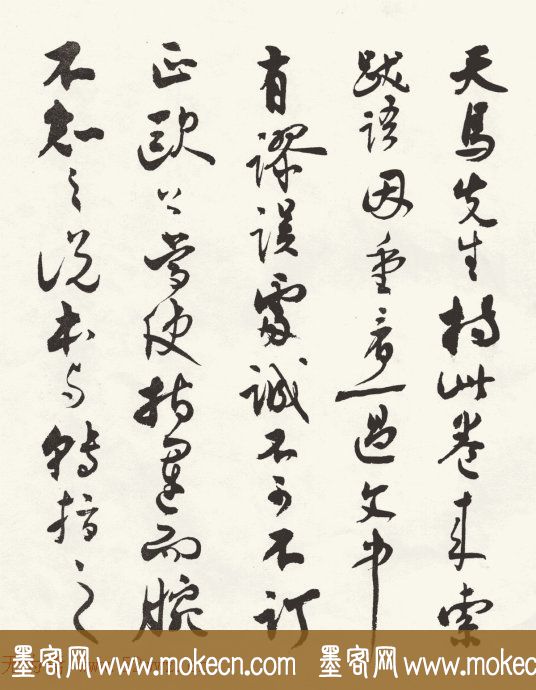 天馬先生持此卷来索
跋语因重音一过文中
有谬误处诚不可不订
正欧公当使指运而腕
不知之说本与转指之
墨客网 www.mokecn.com 墨客网 www.mokecn.com